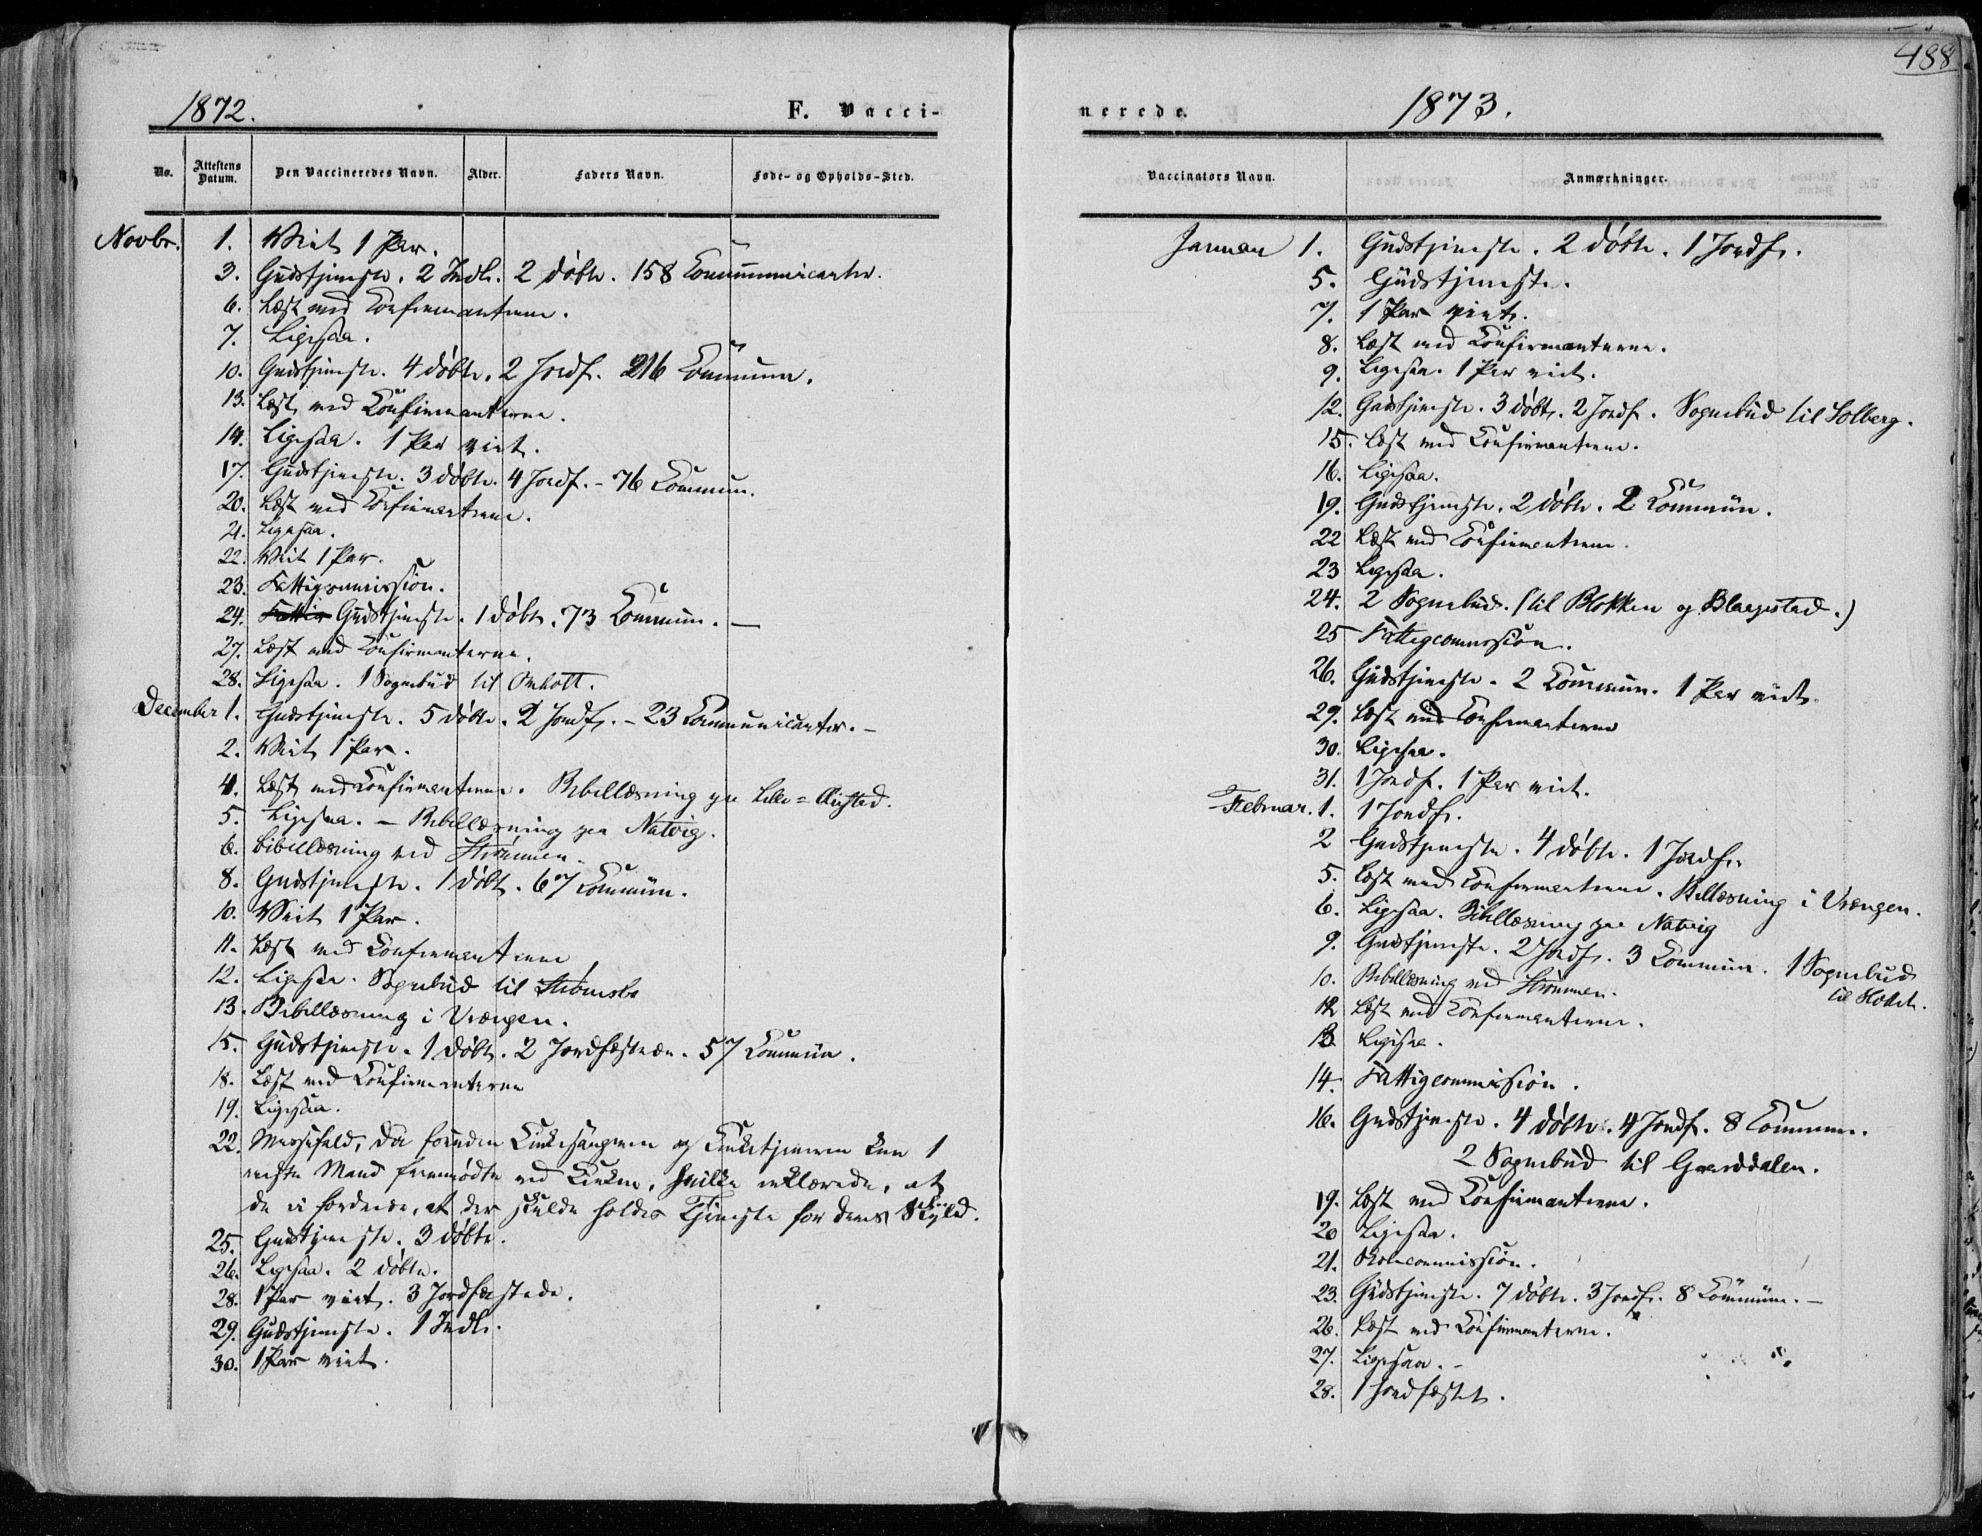 488
1872.
F. Vacci-
nerede.
1873.
No.
Attestens Datum.
Den Vaccineredes Navn.
Alder.
Faders Navn.
Føde- og Opholds-Sted.
Novbr. 1. Viet 1 Par.
3. Gudstjeneste. 2 Indl. 2 døbte. 158 Communicanter.
6. Læst med Confirmanterne.
7. Ligesaa.
10. Gudstjeneste. 4 døbte. 2 Jordf. 216 Commun.
13. Læst med Confirmanterne.
14. Ligesaa. 1 Par viet.
17. Gudstjeneste. 3 døbte. 4 Jordf. - 76 Commun.
20. Læst med Confirmanterne.
21. Ligesaa.
22. Viet 1 Par.
23. Fattigcommission.
24. Gudstjeneste. 1 døbt. 73 Commun. —
27. Læst med Confirmanterne.
28. Ligesaa. 1 Sognebud til Omholt.
December 1. Gudstjeneste. 5 døbte. 2 Jordf. - 23 Communicanter. -
2. Viet 1 Par.
4. Læst med Confirmanterne. Bibellæsning paa Lille=
5. Ligesaa. - Bibellæsning paa Natvig.
6. Bibellæsning ved Strømmen.
8. Gudstjeneste. 1 døbt. 67 Commun.
10. Viet 1 Par.
11. Læst med Confirmanterne
12. Ligesaa. Sognebud til Strømsbo
13. Bibellæsning i Vrængen.
15. Gudstjeneste. 1 døbt. 2 Jordfæstede. 57 Commun.
18. Læst med Confirmanterne
19. Ligesaa.
22. Messefald, da foruden Kirkesangeren og Kirketjeneren kun 1
Mand fremmødte ved Kirken, hvilke erklærede, at
de ei fordrede, at der skulde holdes Tjeneste for deres Skyld.
25. Gudstjeneste. 3 døbte.
26. Ligesaa. 2 døbte.
28. 1 Par viet. 3 Jordfæstede.
29. Gudstjeneste. 1 Indl.
30. 1 Par viet.
Vaccinators Navn.
Anmærkninger.
Januar 1. Gudstjeneste. 2 døbte. 1 Jordf.
5. Gudstjeneste.
7. 1 Par viet.
8. Læst med Confirmanterne.
9. Ligesaa. 1 Par viet.
12. Gudstjeneste. 3 døbte. 2 Jordf. Sognebud til Solberg.
15. Læst med Confirmanterne.
16. Ligesaa.
19. Gudstjeneste. 2 døbte. 2 Commun.
22 Læst med Confirmanterne.
23 Ligesaa.
24. 2 Sognebud. (til Blokken og Blaagestad.)
25 Fattigcommission.
26. Gudstjeneste. 2 Commun. 1 Par viet.
29. Læst med Confirmanterne
30. Ligesaa.
31. 1 Jordf. 1 Par viet.
Februar. 1. 1 Jordf.
2 Gudstjeneste. 4 døbte. 1 Jordf.
5. Læst med Confirmanterne. Bibellæsning i Vrængen.
6. Ligesaa. Bibellæsning paa Natvig
9. Gudstjeneste. 2 Jordf. 3 Commun. 1 Sognebud
til
10. Bibellæsning ved Strømmen.
12 Læst med Confirmanterne.
13. Ligesaa.
14. Fattigcommission.
16. Gudstjeneste. 4 døbte. 4 Jordf. 8 Commun.
2 Sognebud til Gaarddalen.
19. Læst med Confirmanterne.
20 Ligesaa.
21. Skolecommission.
23. Gudstjeneste. 7 døbte. 3 Jordf. 8 Commun. -
26. Læst med Confirmanterne.
27. Ligesaa. -
28. 1 Jordfæstet.